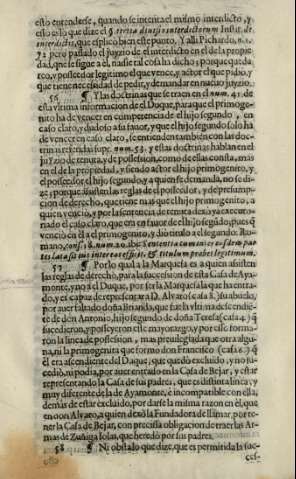 esto entenderse, quando se intenta el mismo interdicto, y
esso es lo que dize el §. tertia diuisio interdictorum Instit. de
interdictis, que esplico bien este punto, Y alli Pichardo, n. 2.
72 pero passado el juyzio de el interdicto en el de la propie-
dad, que se sigue a èl, nadie tal cosa ha dicho; porque queda
reo, y possedor legitimo el que vence, y actor el que pidio, y
que tiene necessidad de pedir, y demandar en nueuo juyzio.
56 ¶ Y las doctrinas que traen en el num. 41. de
esta vltima informacion de el Duque, para que el primoge-
nito ha de vencer en competencia de el hijo segundo, en
caso claro, y dudoso a su fauor, y que el hijo segundo solo ha
de vencer en caso claro, se entienden tambien con las doc-
trinas referidas supr. num. 53. y estas doctrinas hablan en el
juyzio de tenuta, y de possession, como de ellas consta, mas
en el de la propiedad, y siendo actor el hijo primogenito, y
el possessor el hijo segundo, y a quien se demanda, no se di-
ze; porque assisten las reglas de el possedor, y de presump-
cion de derecho, que mas que el hijo primogenito, a
quien vencio, y por la sentencia de tenuta dexò ya executo-
riado el caso claro, que en fauor de el hijo segūdo, pues q̄
venciò en ella el primogenito, y dio titulo a el segundo: Ro-
mano, cons. 18. num. 20. ibi: Sententia transiens eisdem par-
tes lata facit inter eos &c. & titulum prabet legitimum.
57 ¶ Por lo qual a la Marquesa es a quien assisten
las reglas de derecho, para la succession de esta Casa de Aya-
monte, y no a el Duque, por ser la Marquesa la que ha entra-
do, y es capaz de representar a D. Alvaro (casa 8.) su abuelo,
por auer faltado doña Brianda, que fue la vltima descendie-
te de don Antonio, hijo segundo de doña Teresa (casa 4.) q̄
sucedieron, y posseyeron este mayorazgo, y por esso forma-
ron la linea de possession, mas preuilegiada que otra algu-
na, ni la primogenita que formò don Francisco (casa 5.) q̄
es el ascendiente del Duque, que quedò excluido, y no suc-
cediò, ni podia, por auer entrado en la Casa de Bejar, y estar
representando la Casa de sus padres, que es distinta linea, y
muy diferente de la de Ayamonte, è incompatible con ella,
demàs de estar excluido, por darse la misma razon en èl, que
en don Alvaro, a quien dexò la Fundadora de llamar, por te-
ner la Casa de Bejar, con precissa obligacion de traer las Ar-
mas de Zuñiga solas, que heredò por sus padres.
58 ¶ Ni obsta lo que dize, que es permitida la suc-
ces-